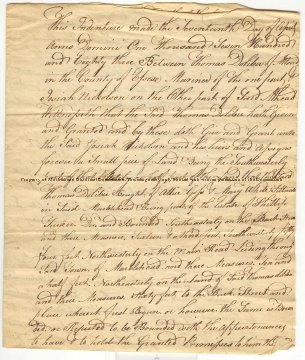 This Indenture made the Seventeenth Day of
Anno Domini One Thousand Seven Hundred
and Eighty three Between Thomas Dolibar of
in the County of Essex Mariner of the one part &
Josiah Nickolson on the Other part of Said
Witnesseth that the Said Thomas Dolibar hath Given
and Granted and by these doth Give and Grant unto
the Said Josiah Nickolson and his heirs and assigns
forever the Small piece of Land being the Southwesterly
Thomas Dolibar Bought of & Mary
in Said Marblehead being part of the Estate of Phillip
and Bounded Southeastwardly on the
and there Measures Sixteen & third feet, Southwesterly fifty
four feet Northwesterly on the Main Road Leading through
Said Town of Marblehead and there Measures Ten and
a half feet Northeasterly on the Land of Said Thomas Dolibar
and there Measures feet to the Street and
place whereat first Begun or however the Same is
or Reputed to be Bounded with the appurtenances
to have & to hold the Granted Premisses to him the